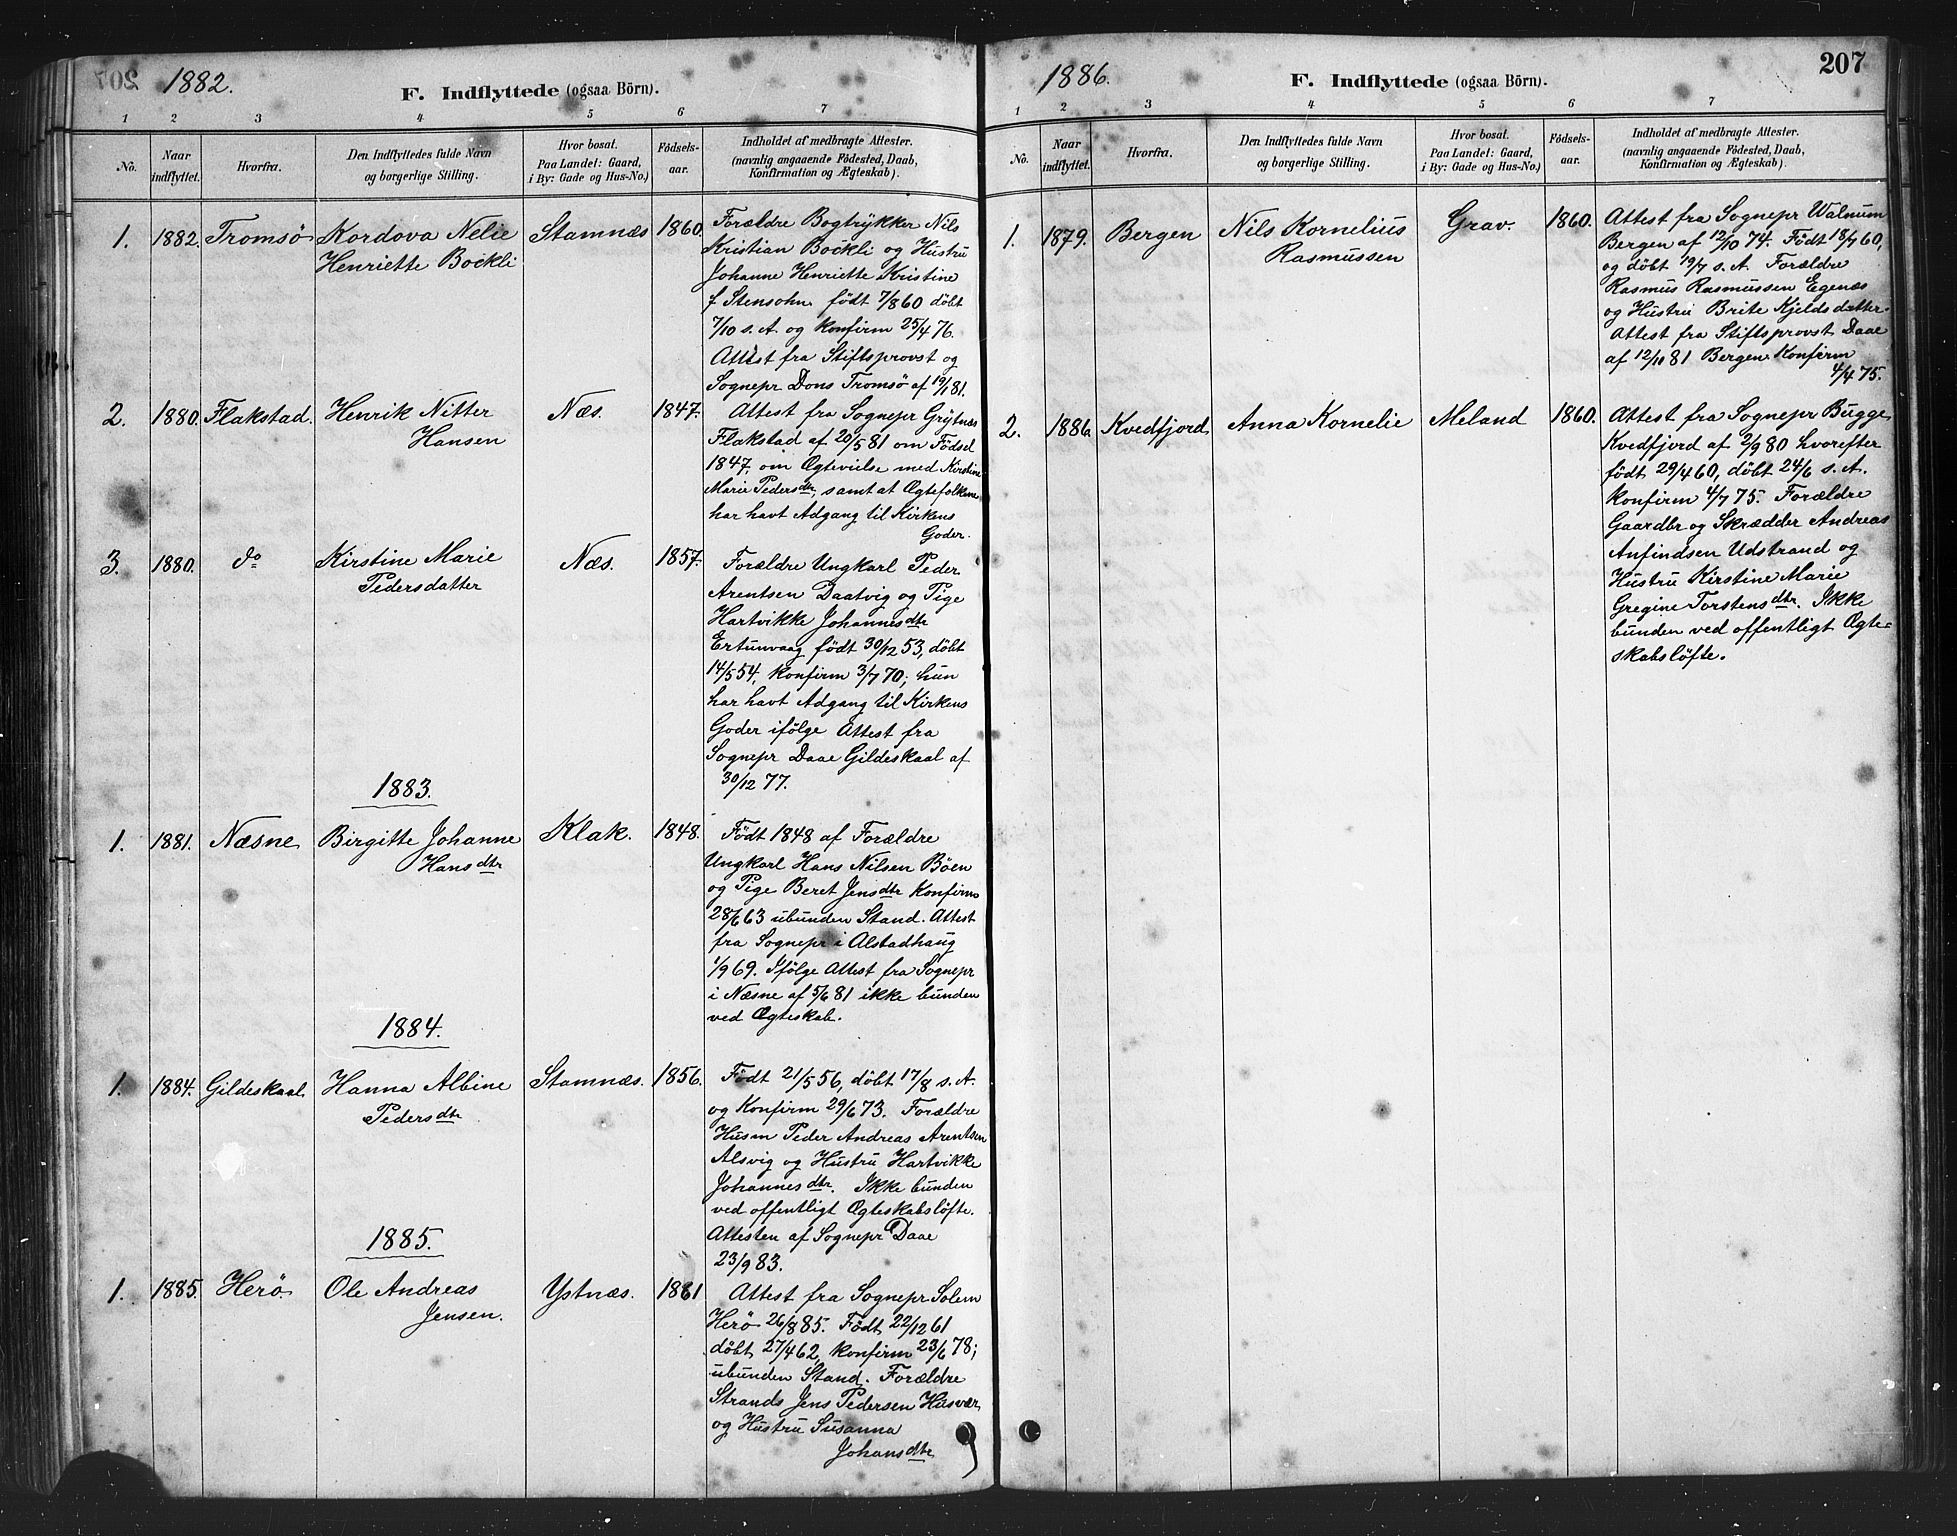 1882.
F. Indflyttede (ogsaa Börn).
1 2 3 4 5 6 7
No.
Naar indflyttet.
Hvorfra.
Den Indflyttedes fulde Navn
og borgerlige Stilling.
Hvor bosat.
Paa Landet: Gaard,
i By: Gade og Hus-No.)
Födsels-
aar.
Indholdet af medbragte Attester.
(navnlig angaaende Födested, Daab,
Konfirmation og Ægteskab).
1. 1882. Tromsö Kordova Nelie Stamnæs 1860.
Henriette Bockli
Forældre Bogtrykker Nils
Kristian Bockli og Hustru
Johanne Henriette Kristine
f Stensohn födt 7/8 60 döbt
7/10 s. A. og konfirm 25/4 76.
Attest fra Stiftsprovst og
Sognepr Dons Tromsö af 19/1 81.
2. 1880. Flakstad. Henrik Nitter Næs. 1847.
Hansen
Attest fra Sognepr Grytnæs
Flakstad af 20/5 81 om Födsel
1847, om Ægtevielse med Kirstine
Marie Pedersdtr, samt at Ægtefolkene
har havt Adgang til Kirkens
Goder.
3. 1880. do Kirstine Marie Næs. 1857.
Pedersdatter
Forældre Ungkarl Peder
Arentsen Daatvig og Pige
Hartvikke Johannesdtr
Ertunvaag födt 30/12 53, döbt
14/5 54, konfirm 3/7 70; hun
har havt Adgang til Kirkens
Goder ifölge Attest fra
Sognepr Daae Gildeskaal af
30/12 77.
1883.
1. 1881. Næsne Birgitte Johanne Klak. 1848.
Hansdtr
Födt 1848 af Forældre
Ungkarl Hans Nilsen Böen
og Pige Beret Jensdtr Konfirm
28/6 63 ubunden Stand. Attest
fra Sognepr i Alstadhaug
1/9 69. Ifölge Attest fra Sognepr
i Næsne af 5/6 81 ikke bunden
ved Ægteskab.
1884.
1. 1884. Gildeskaal Hanna Albine Stamnæs. 1856.
Pedersdtr
Födt 21/5 56, döbt 17/8 s. A.
og Konfirm 29/6 73. Forældre
Husm Peder Andreas Arentsen
Alsvig og Hustru Hartvikke
Johannesdtr. Ikke bunden
ved offentligt Ægteskabslöfte.
Attesten af Sognepr Daae
23/9 83.
1885.
1. 1885. Herö. Ole Andreas Ystnæs. 1861
Jensen.
Attest fra Sognepr Solem
Herö 26/8 85. Födt 22/12 61
döbt 27/4 62, konfirm 23/6 78;
ubunden Stand. Forældre
Strands Jens Pedersen Husvær
og Hustru Susanna
Johansdtr
1886.
F. Indflyttede (ogsaa Börn).
207
1 2 3 4 5 6 7
No.
Naar indflyttet.
Hvorfra.
Den Indflyttedes fulde Navn
og borgerlige Stilling.
Hvor bosat.
Paa Landet: Gaard,
i By: Gade og Hus-No.)
Födsels-
aar.
Indholdet af medbragte Attester.
(navnlig angaaende Födested, Daab,
Konfirmation og Ægteskab).
1. 1879. Bergen Nils Kornelius Grav. 1860.
Rasmussen
Attest fra Sognepr Walnum
Bergen af 12/10 74. Födt 18/7 60,
og döbt 19/7 s. A. Forældre
Rasmus Rasmussen Egenæs
og Hustru Brite Kjeldsdatter.
Attest fra Stiftsprovst Daae
af 12/11 81 Bergen Konfirm
4/4 75.
2. 1886. Kvedfjord Anna Kornelie Meland 1860.
Attest fra Sognepr Bugge
Kvedfjord af 2/9 80 hvorefter
födt 29/4 60, döbt 24/6 s. A.
Konfirm 4/7 75. Forældre
Gaardbr og Skrædder Andreas
Anfindsen Udstrand og
Hustru Kirstine Marie
Gregine Torstensdtr. Ikke
bunden ved offentligt Ægte-
skabslöfte.